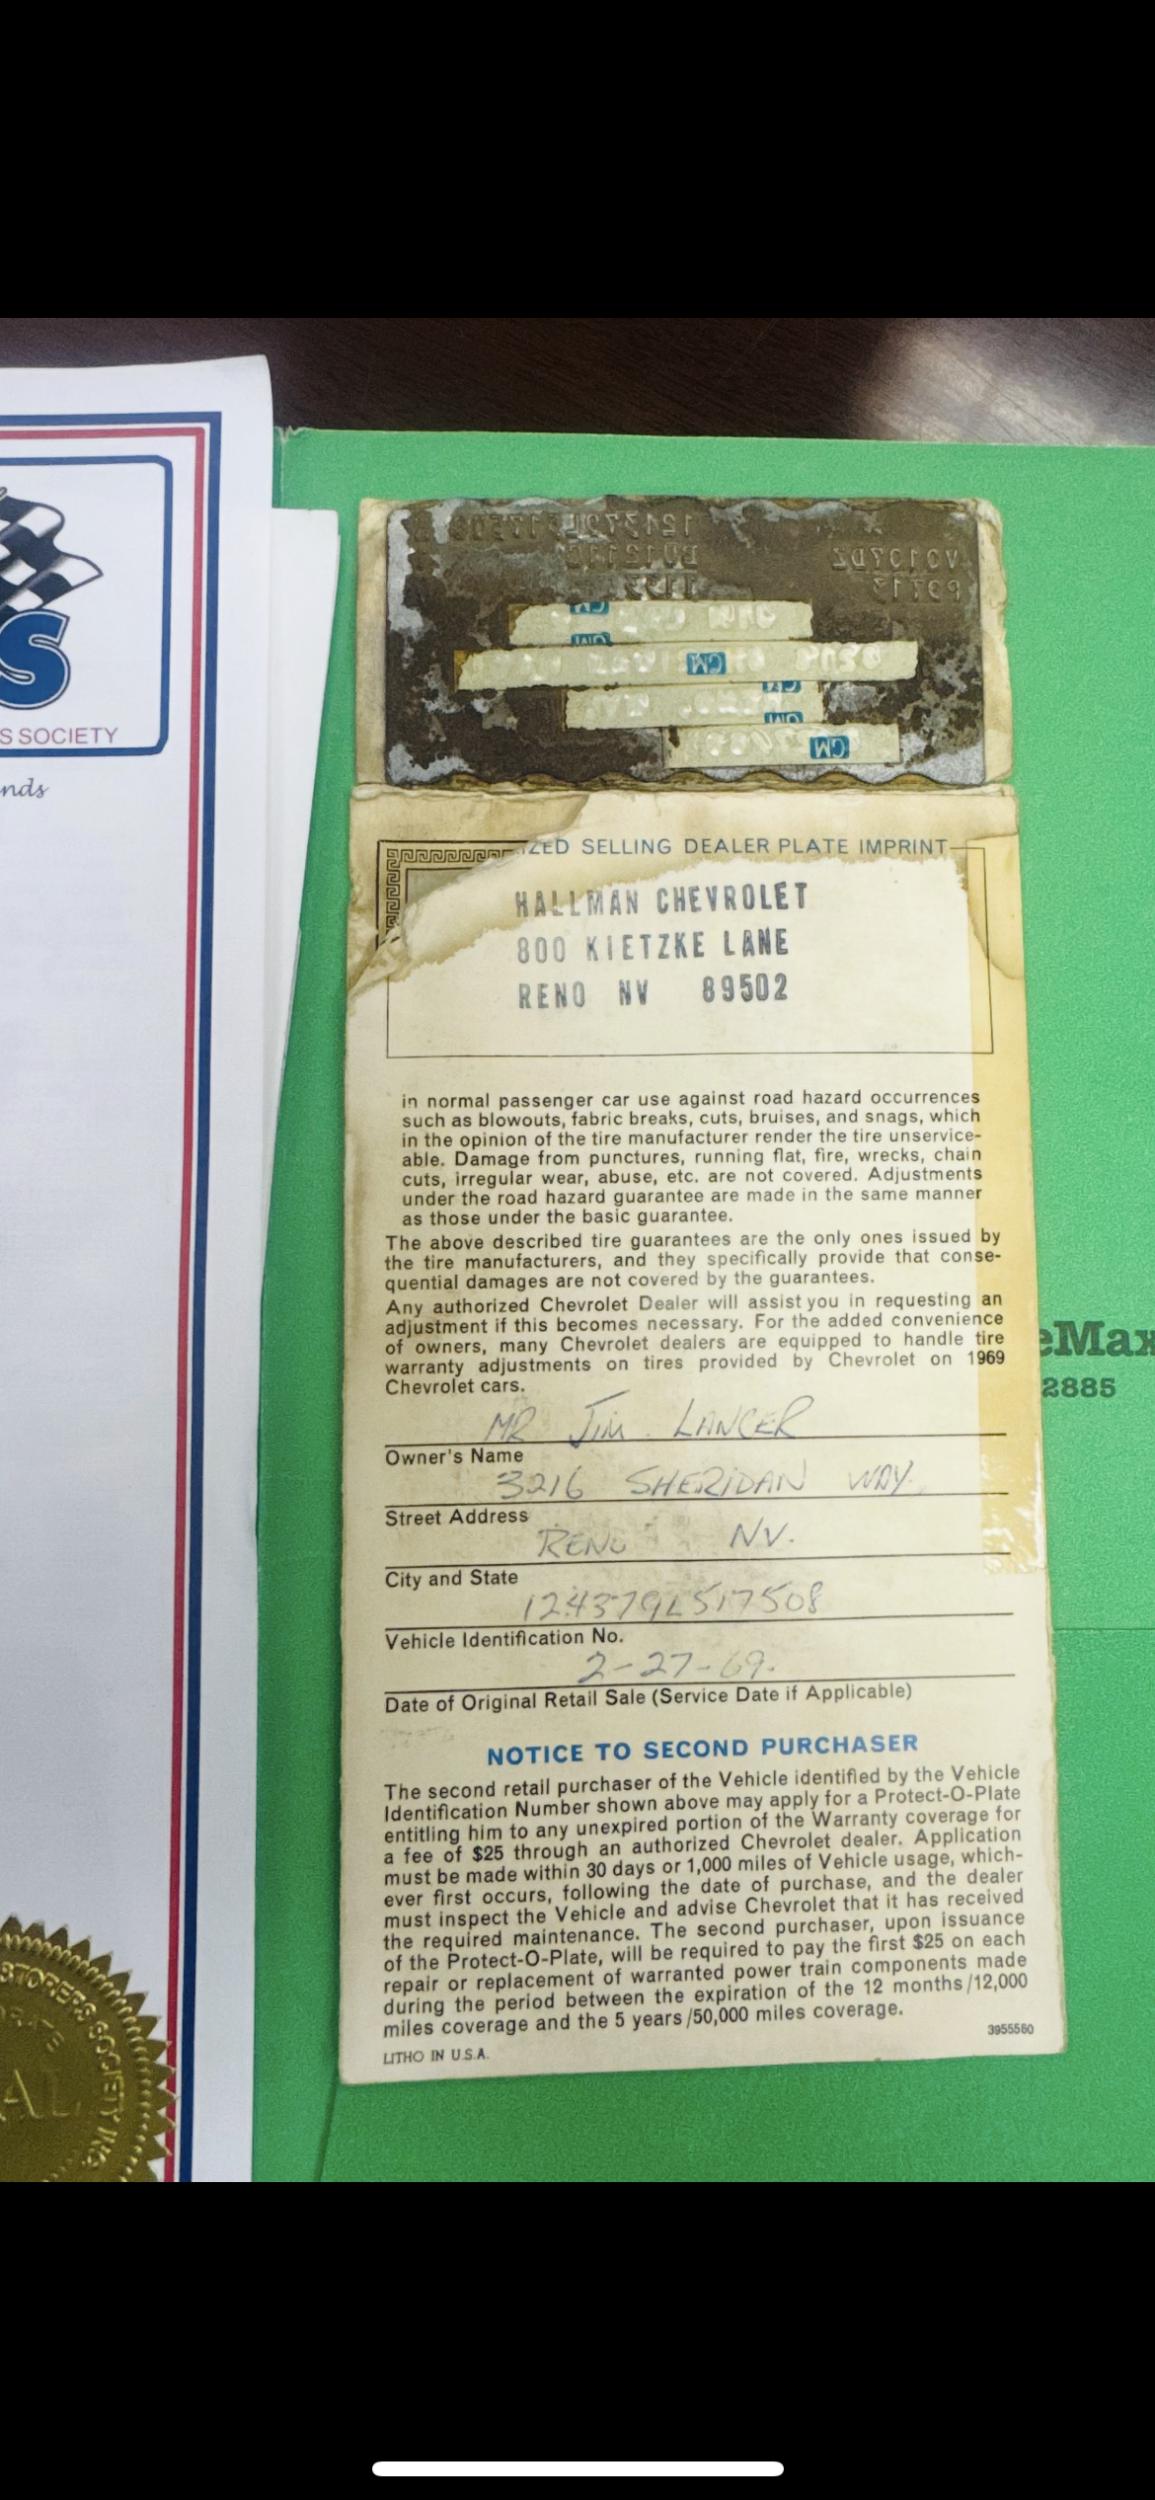 S
S SOCIETY
nds
GM
GM
GM
GM
GM
GM
SELLING DEALER PLATE IMPRINT
HALLMAN CHEVROLET
800 KIETZKE LANE
RENO NV 89502
in normal passenger car use against road hazard occurrences
such as blowouts, fabric breaks, cuts, bruises, and snags, which
in the opinion of the tire manufacturer render the tire unservice-
able. Damage from punctures, running flat, fire, wrecks, chain
cuts, irregular wear, abuse, etc. are not covered. Adjustments
under the road hazard guarantee are made in the same manner
as those under the basic guarantee.
The above described tire guarantees are the only ones issued by
the tire manufacturers, and they specifically provide that conse-
quential damages are not covered by the guarantees.
Any authorized Chevrolet Dealer will assist you in requesting an
adjustment if this becomes necessary. For the added convenience
of owners, many Chevrolet dealers are equipped to handle tire
warranty adjustments on tires provided by Chevrolet on 1969
Chevrolet cars.
MR JIM LANCER
Owner's Name
3216 SHERIDAN WAY.
Street Address
RENO NV.
City and State
124379L517508
Vehicle Identification No.
2-27-69.
Date of Original Retail Sale (Service Date if Applicable)
NOTICE TO SECOND PURCHASER
The second retail purchaser of the Vehicle identified by the Vehicle
Identification Number shown above may apply for a Protect-O-Plate
entitling him to any unexpired portion of the Warranty coverage for
a fee of $25 through an authorized Chevrolet dealer. Application
must be made within 30 days or 1,000 miles of Vehicle usage, which-
ever first occurs, following the date of purchase, and the dealer
must inspect the Vehicle and advise Chevrolet that it has received
the required maintenance. The second purchaser, upon issuance
of the Protect-O-Plate, will be required to pay the first $25 on each
repair or replacement of warranted power train components made
during the period between the expiration of the 12 months/12,000
miles coverage and the 5 years/50,000 miles coverage.
3955560
LITHO IN U.S.A.
eMax
2885
STORERS SOCIETY INC.